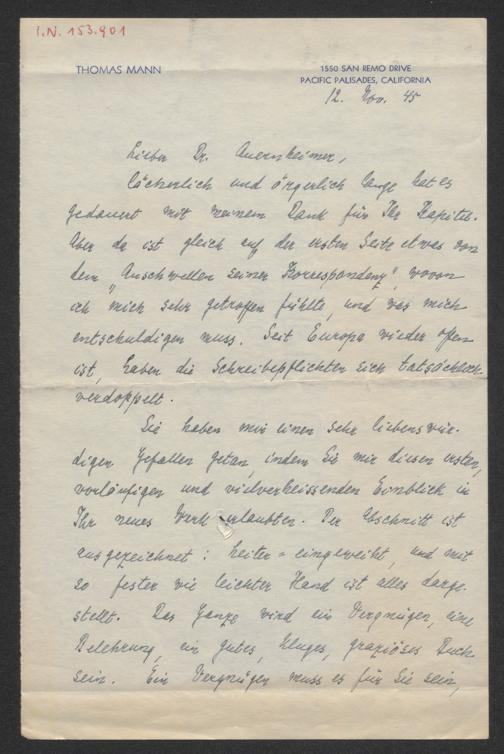 I.N. 153.901
THOMAS MANN
1550 SAN REMO DRIVE
PACIFIC PALISADES, CALIFORNIA
12. Nov. 45
Lieber Dr. Auernheimer,
lächerlich und ärgerlich lange hat es
gedauert mit meinem Dank für Ihr Kapitel.
Aber da ist gleich auf der ersten Seite etwas von
dem "Anschwellen seiner Korrespondenz", wovon
ich mich sehr getroffen fühlte, und was mich
entschuldigen muss. Seit Europa wieder offen
ist, haben die Schreibepflichten sich tatsächlich
verdoppelt.
Sie haben mir einen sehr liebenswür-
digen Gefallen getan, indem Sie mir diesen ersten,
vorläufigen und vielverheissenden Einblick in
Ihr neues Werk erlaubten. Der Abschnitt ist
ausgezeichnet: heiter-eingeweiht, und mit
so fester wie leichter Hand ist alles darge-
stellt. Das Ganze wird ein Vergnügen, eine
Belehrung, ein gutes, kluges, graziöses Buch
sein. Ein Vergnügen muss es für Sie sein,